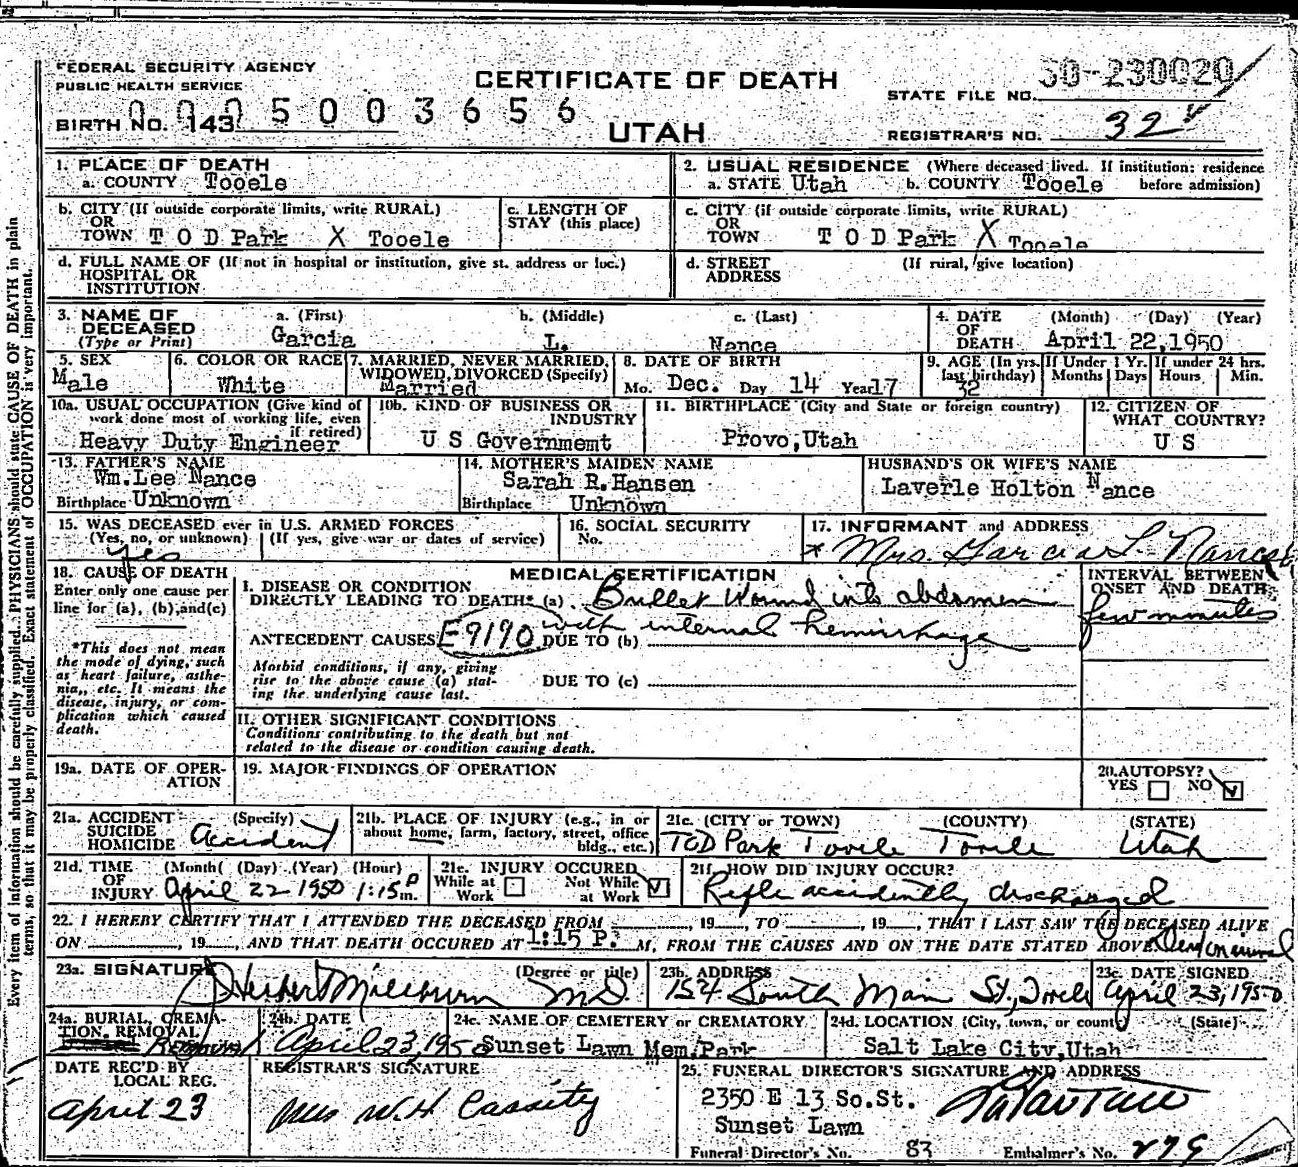 FEDERAL SECURITY AGENCY
PUBLIC HEALTH SERVICE
CERTIFICATE OF DEATH
STATE FILE NO. 50-230020
BIRTH NO. 143
0005003656
UTAH
REGISTRAR'S NO. 32
1. PLACE OF DEATH
a. COUNTY Tooele
2. USUAL RESIDENCE (Where deceased lived. If institution: residence before admission)
a. STATE Utah b. COUNTY Tooele
b. CITY (If outside corporate limits, write RURAL)
OR
TOWN T O D Park X Tooele
c. LENGTH OF
STAY (this place)
c. CITY (if outside corporate limits, write RURAL)
OR
TOWN T O D Park X Tooele
d. FULL NAME OF (If not in hospital or institution, give st. address or loc.)
HOSPITAL OR
INSTITUTION
d. STREET (If rural, give location)
ADDRESS
3. NAME OF
DECEASED
(Type or Print)
a. (First) b. (Middle) c. (Last)
Garcia L. Nance
4. DATE (Month) (Day) (Year)
OF
DEATH April 22,1950
5. SEX
Male
6. COLOR OR RACE
White
7. MARRIED, NEVER MARRIED,
WIDOWED, DIVORCED (Specify)
Married
8. DATE OF BIRTH
Mo. Dec. Day 14 Year 17
9. AGE (In yrs. last birthday)
32
If Under 1 Yr.
Months Days
If under 24 hrs.
Hours Min.
10a. USUAL OCCUPATION (Give kind of
work done most of working life, even
if retired)
Heavy Duty Engineer
10b. KIND OF BUSINESS OR
INDUSTRY
U S Governmemt
11. BIRTHPLACE (City and State or foreign country)
Provo,Utah
12. CITIZEN OF
WHAT COUNTRY?
U S
13. FATHER'S NAME
Wm.Lee Nance
Birthplace Unknown
14. MOTHER'S MAIDEN NAME
Sarah R.Hansen
Birthplace Unknown
HUSBAND'S OR WIFE'S NAME
Laverle Holton Nance
15. WAS DECEASED ever in U.S. ARMED FORCES
(Yes, no, or unknown) (If yes, give war or dates of service)
yes
16. SOCIAL SECURITY
No.
17. INFORMANT and ADDRESS
* Mrs. Garcia L. Nance
18. CAUSE OF DEATH
Enter only one cause per
line for (a), (b), and(c)
*This does not mean
the mode of dying, such
as heart failure, asthe-
nia,, etc. It means the
disease, injury, or com-
plication which caused
death.
MEDICAL CERTIFICATION
I. DISEASE OR CONDITION
DIRECTLY LEADING TO DEATH* (a) Bullet Wound into abdomen
with internal hemirhage
ANTECEDENT CAUSES E9190 DUE TO (b)
Morbid conditions, if any, giving
rise to the above cause (a) stat-
ing the underlying cause last.
DUE TO (c)
II. OTHER SIGNIFICANT CONDITIONS
Conditions contributing to the death but not
related to the disease or condition causing death.
INTERVAL BETWEEN
ONSET AND DEATH
few minutes
19a. DATE OF OPER-
ATION
19. MAJOR FINDINGS OF OPERATION
20. AUTOPSY?
YES NO
21a. ACCIDENT (Specify)
SUICIDE
HOMICIDE
Accident
21b. PLACE OF INJURY (e.g., in or
about home, farm, factory, street, office
bldg., etc.)
21c. (CITY or TOWN) (COUNTY) (STATE)
TOD Park Tooele Tooele Utah
21d. TIME (Month( (Day) (Year) (Hour)
OF
INJURY April 22 1950 1:15 P m.
21e. INJURY OCCURED
While at Work Not While at Work
21f. HOW DID INJURY OCCUR?
Rifle accidently discharged
22. I HEREBY CERTIFY THAT I ATTENDED THE DECEASED FROM , 19 , TO , 19 , THAT I LAST SAW THE DECEASED ALIVE
ON , 19 , AND THAT DEATH OCCURED AT 1:15 P. M, FROM THE CAUSES AND ON THE DATE STATED ABOVE
23a. SIGNATURE (Degree or title)
Herbert Millburn M.D.
23b. ADDRESS
154 South Main St, Tooele
23c. DATE SIGNED
April 23, 1950
24a. BURIAL, CREMA-
TION, REMOVAL
Removal
24b. DATE
April 23, 1950
24c. NAME OF CEMETERY or CREMATORY
Sunset Lawn Mem.Park
24d. LOCATION (City, town, or county) (State)
Salt Lake City,Utah
DATE REC'D BY
LOCAL REG.
April 23
REGISTRAR'S SIGNATURE
Mrs W.H Cassity
25. FUNERAL DIRECTOR'S SIGNATURE AND ADDRESS
2350 E 13 So.St.
Sunset Lawn
Funeral Director's No. 83 Embalmer's No. 279
Every item of information should be carefully supplied. PHYSICIANS should state CAUSE OF DEATH in plain
terms, so that it may be properly classified. Exact statement of OCCUPATION is very important.